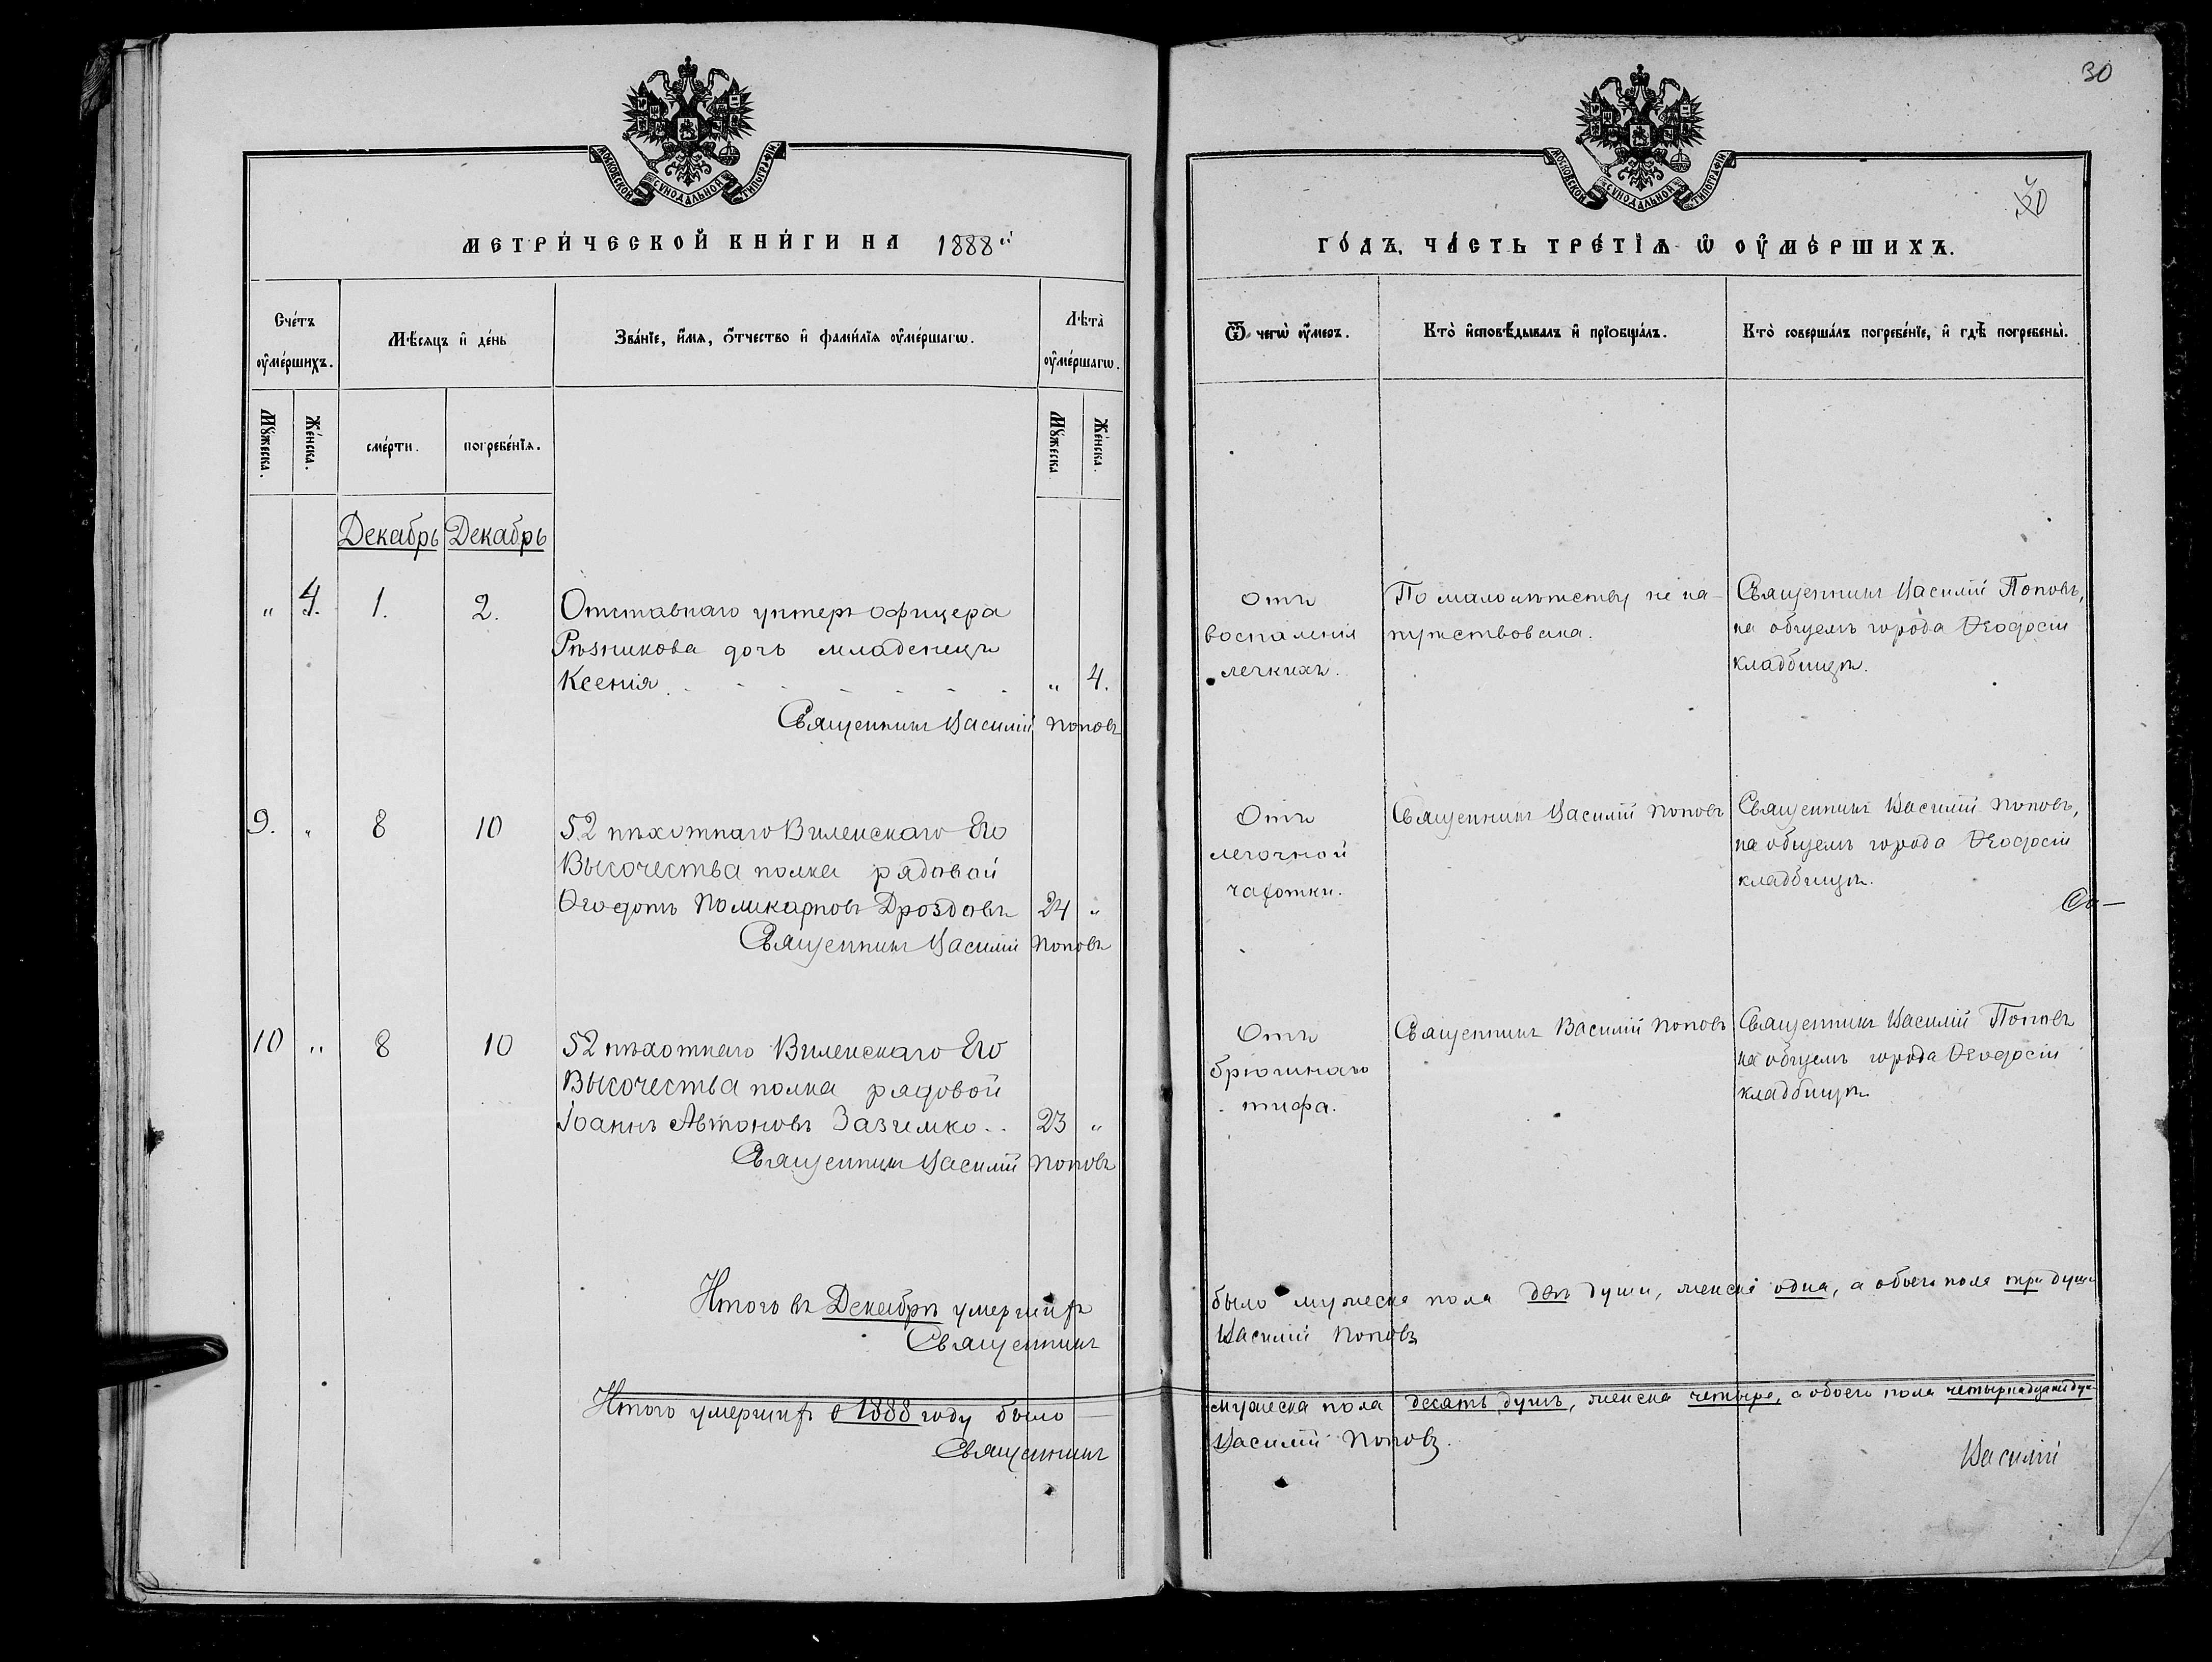 30
30
МОСКОВСКОЙ СѴНОДАЛЬНОЙ ТИПОГРАФІИ
МОСКОВСКОЙ СѴНОДАЛЬНОЙ ТИПОГРАФІИ
МЕТРИ́ЧЕСКОЙ КНИ́ГИ НА 1888й
ГО́ДЪ, ЧА́СТЬ ТРЕ́ТІѦ Ѡ ОУ҆МЕ́РШИХЪ.
Сче́тъ оу҆ме́ршихъ.
Мꙋ́жеска.
Же́нска.
Мѣ́сяцъ и҆ де́нь
сме́рти.
погребе́нїѧ.
Зва́нїе, и҆́мѧ, ѻ҆́тчество и҆ фами́лїѧ оу҆ме́ршагѡ.
Лѣ́та̀ оу҆ме́ршагѡ.
Мꙋ́жеска
Же́нска.
Ѿ чегѡ̀ оу҆́меръ.
Кто̀ и҆сповѣ́дывалъ и҆ прїѻбща́лъ.
Кто̀ соверша́лъ погребе́нїе, и҆ гдѣ̀ погребены̀.
Декабрь Декабрь
" 4. 1. 2. Отставнаго унтеръ офицера
Рѣзникова дочь младенецъ
Ксенія " 4.
Священникъ Василій Поповъ
Отъ
воспаленія
легкихъ.
По малолѣтству не на-
путствована.
Священникъ Василій Поповъ,
на общемъ города Ѳеодосіи
кладбищѣ.
9. " 8 10 52 пѣхотнаго Виленскаго Его
Высочества полка рядовой
Ѳеодотъ Поликарповъ Дроздовъ 24 "
Священникъ Василій Поповъ
Отъ
легочной
чахотки.
Священникъ Василій Поповъ
Священникъ Василій Поповъ,
на общемъ города Ѳеодосіи
кладбищѣ.
10 " 8 10 52 пѣхотнаго Виленскаго Его
Высочества полка рядовой
Іоаннъ Автоновъ Зазимко 23 "
Священникъ Василій Поповъ
Отъ
брюшнаго
тифа.
Священникъ Василій Поповъ
Священникъ Василій Поповъ
на общемъ города Ѳеодосіи
кладбищѣ
Итого въ Декабрѣ умершихъ было мужеска пола двѣ души, женска одна, а обоего пола три души
Священникъ Василій Поповъ
Итого умершихъ въ 1888 году было мужеска пола десять душъ, женска четыре, а обоего пола четырнадцать душ
Священникъ Василій Поповъ.
Василій